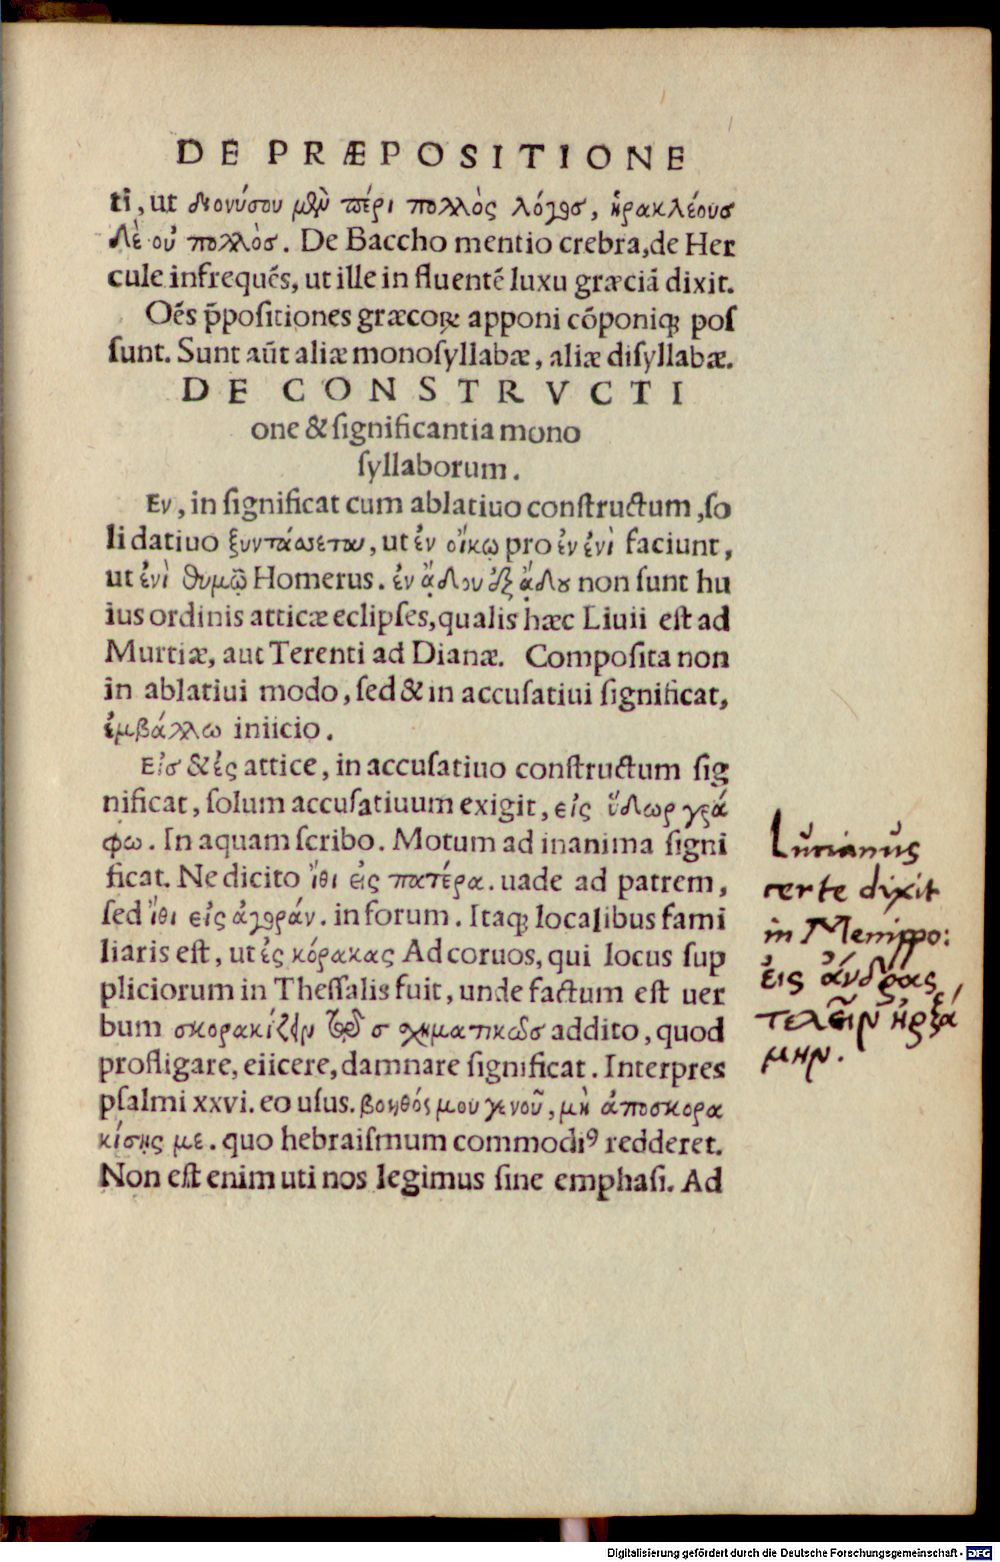 DE PRÆPOSITIONE
ti, ut διονύσου μὲν πέρι πολλὸς λόγοσ, ἡρακλέουσ
δὲ οὐ πολλὸσ. De Baccho mentio crebra, de Her
cule infrequẽs, ut ille in fluentẽ luxu græciã dixit.
Oẽs p̃positiones græcoꝝ apponi cõponiqꝫ pos
sunt. Sunt aũt aliæ monosyllabæ, aliæ disyllabæ.
DE CONSTRVCTI
one & significantia mono
syllaborum.
Εν, in significat cum ablatiuo constructum, so
li datiuo ξυντάσσεται, ut ἐν οἴκῳ pro ἐν ἐνὶ faciunt,
ut ἐνὶ θυμῷ Homerus. ἐν ᾅδου ἐξ ᾅδου non sunt hu
ius ordinis atticæ eclipses, qualis hæc Liuii est ad
Murtiæ, aut Terenti ad Dianæ. Composita non
in ablatiui modo, sed & in accusatiui significat,
ἐμβάλλω iniicio.
Εἰσ & ἐς attice, in accusatiuo constructum sig
nificat, solum accusatiuum exigit, εἰς ὕδωρ γρά
φω. In aquam scribo. Motum ad inanima signi
ficat. Ne dicito ἴθι εἰς πατέρα. uade ad patrem,
sed ἴθι εἰς ἀγοράν. in forum. Itaqꝫ localibus fami
liaris est, ut ἐς κόρακας Ad coruos, qui locus sup
pliciorum in Thessalis fuit, unde factum est uer
bum σκορακίζειν τοῦ σ σχηματικῶσ addito, quod
profligare, eiicere, damnare significat. Interpres
psalmi xxvi. eo usus. βοηθός μου γενοῦ, μὴ ἀποσκορα
κίσῃς με. quo hebraismum commodiꝰ redderet.
Non est enim uti nos legimus sine emphasi. Ad
Lucianus
certe dixit
in Menippo:
εἰς ἄνδρας
τελεῖν ἠρξά
μην.
Digitalisierung gefördert durch die Deutsche Forschungsgemeinschaft - DFG